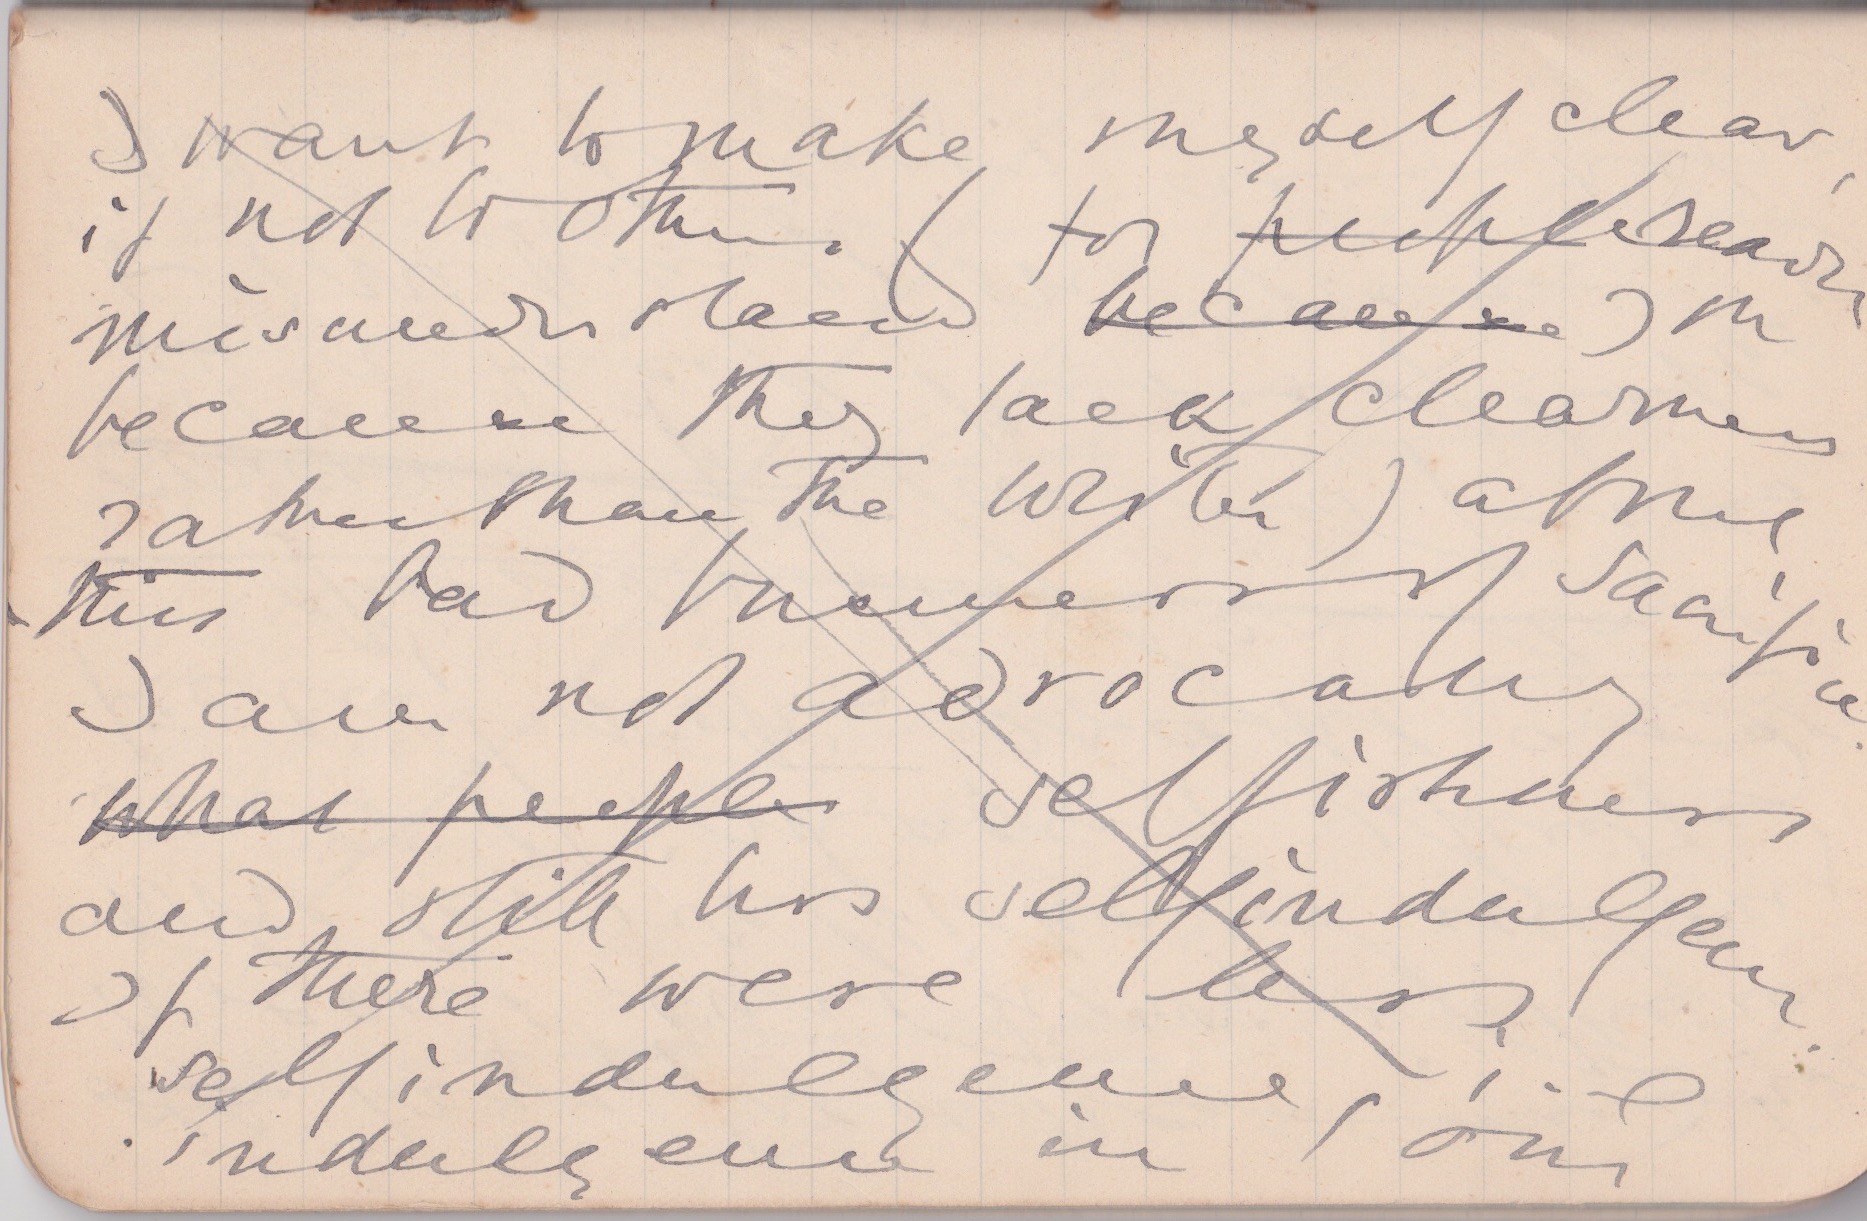 I want to make myself clear,
if not to others (for people readers
misunderstand because)
because they lack clearness
rather than the writer) about
this bad business of sacrifice.
I am not advocating
what people selfishness
and still less selfindulgence.
If there were less
selfindulgence, i.e
indulgence in one's